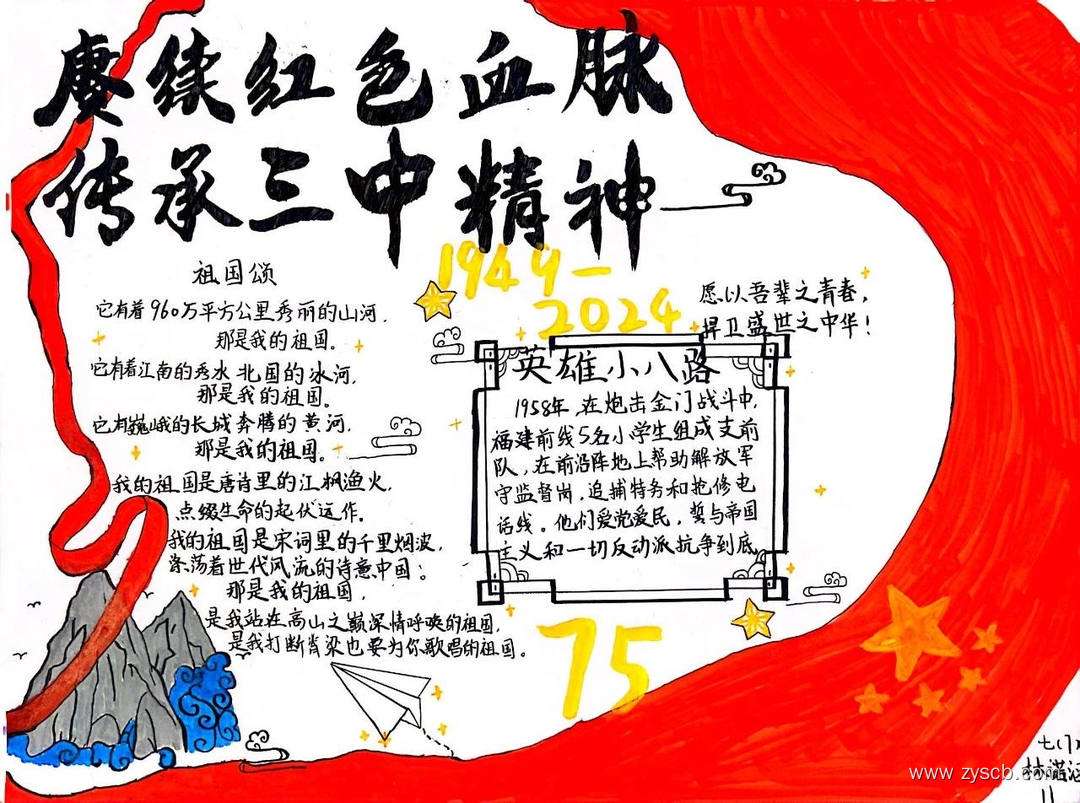 赓续红色血脉
传承三中精神
1949-
2024
祖国颂
它有着960万平方公里秀丽的山河.
那是我的祖国。
它有着江南的秀水 北国的冰河,
那是我的祖国。
它有巍峨的长城 奔腾的黄河,
那是我的祖国。
我的祖国是唐诗里的江枫渔火,
点缀生命的起伏运作.
我的祖国是宋词里的千里烟波,
涤荡着世代风流的诗意中国:
那是我的祖国,
是我站在高山之巅深情呼唤的祖国,
是我打断脊梁也要为你歌唱的祖国。
愿以吾辈之青春,
捍卫盛世之中华!
英雄小八路
1958年,在炮击金门战斗中,
福建前线5名小学生组成支前
队,在前沿阵地上帮助解放军
守监督岗,追捕特务和抢修电
话线。他们爱党爱民,誓与帝国
主义和一切反动派抗争到底
75
11
www.zyscb.com